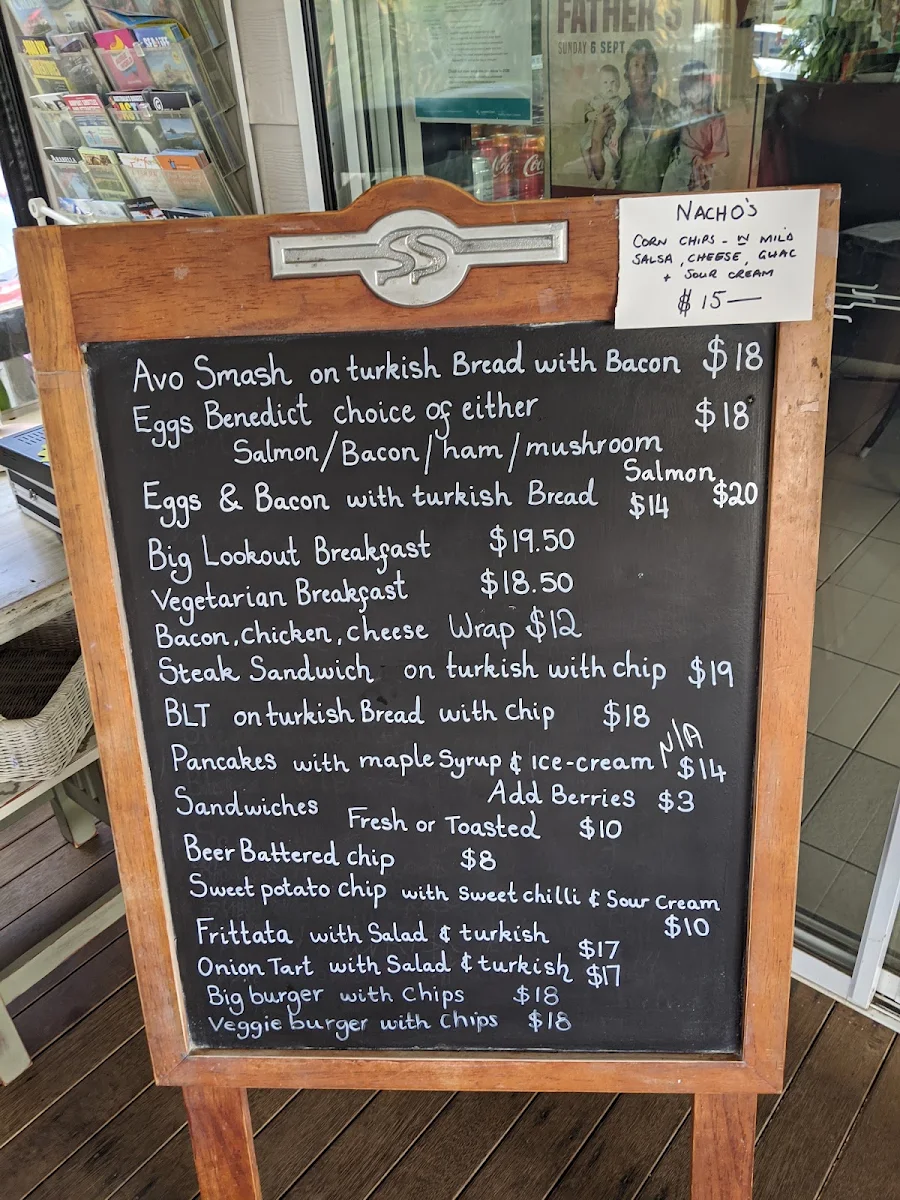 FATHER'S
SUNDAY 6 SEPT
Coke
NACHO'S
CORN CHIPS - W MILD
SALSA, CHEESE, GUAC
+ SOUR CREAM
$15—
SS
Avo Smash on turkish Bread with Bacon $18
Eggs Benedict choice of either $18
Salmon/Bacon/ham/mushroom
Salmon $20
Eggs & Bacon with turkish Bread $14
Big Lookout Breakfast $19.50
Vegetarian Breakfast $18.50
Bacon, chicken, cheese Wrap $12
Steak Sandwich on turkish with chip $19
BLT on turkish Bread with chip $18
Pancakes with maple Syrup & ice-cream N/A $14
Add Berries $3
Sandwiches Fresh or Toasted $10
Beer Battered chip $8
Sweet potato chip with sweet chilli & Sour Cream
$10
Frittata with Salad & turkish $17
Onion Tart with Salad & turkish $17
Big burger with Chips $18
Veggie burger with Chips $18